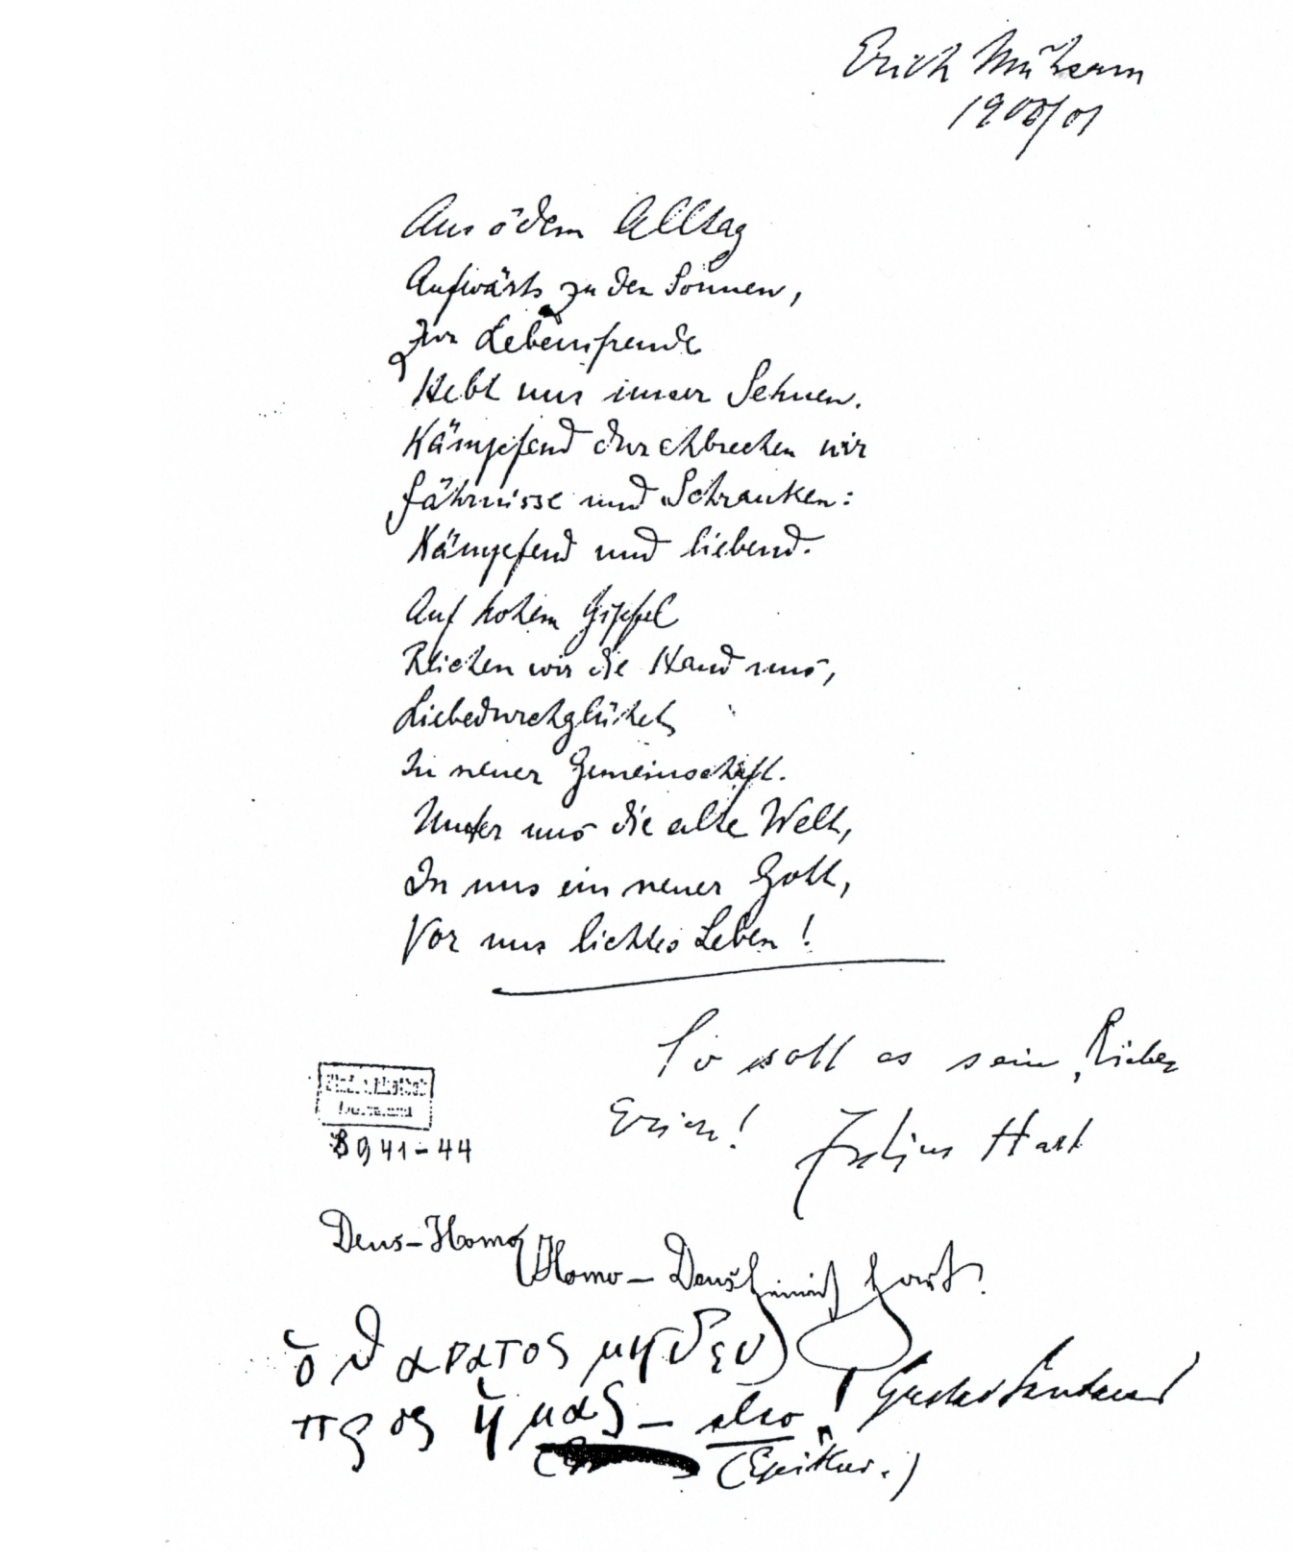 Erich Mühsam
1900/01
Aus ödem Alltag
Aufwärts zu den Sonnen,
Zur Lebensfreude
Hebt uns unser Sehnen.
Kämpfend durchbrechen wir
Fährnisse und Schranken:
Kämpfend und liebend.
Auf hohem Gipfel
Reichen wir die Hand uns,
Liebedurchglühet
In neuer Gemeinschaft.
Unter uns die alte Welt,
In uns ein neuer Gott,
Vor uns lichtes Leben!
So soll es sein, Lieber
Erich! Julius Hart
B 941-44
Deus-Homo
Homo-Deus Heinrich Hart.
ὁ θανατος μηδεν
προς ἡμας - also! Gustav Landauer
(Epikur.)